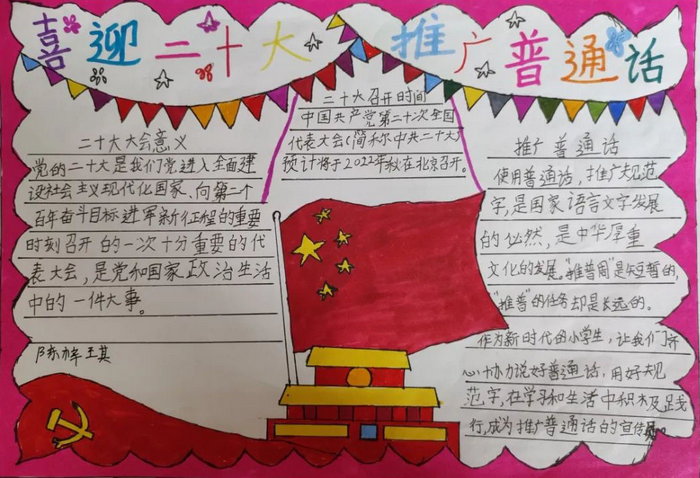 喜迎二十大 推广普通话
二十大大会意义
党的二十大是我们党进入全面建
设社会主义现代化国家、向第二个
百年奋斗目标进军新征程的重要
时刻召开的一次十分重要的代
表大会，是党和国家政治生活
中的一件大事。
二十大召开时间
中国共产党第二十次全国
代表大会(简称中共二十大)
预计将于2022年秋在北京召开。
推广普通话
使用普通话，推广规范
字，是国家语言文字发展
的必然，是中华厚重
文化的发展。"推普周"是短暂的，
"推普"的任务却是长远的。
作为新时代的小学生，让我们齐
心协力说好普通话，用好规
范字，在学习和生活中积极践
行，成为推广普通话的宣传员。